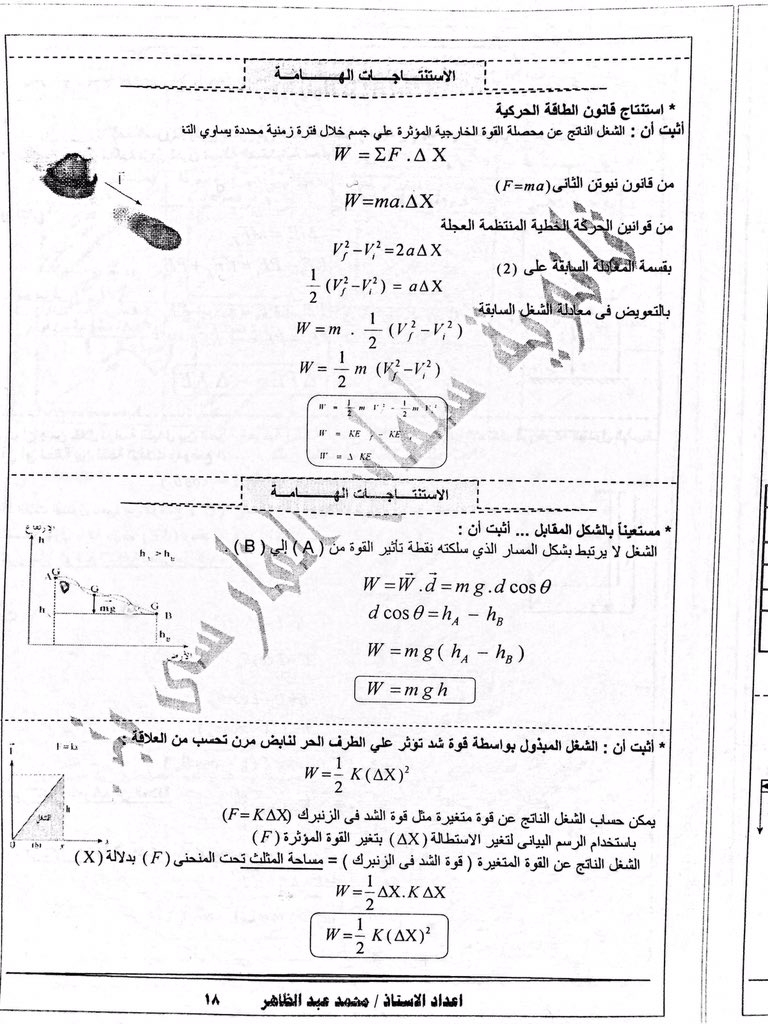 الاستنتـاجـات الهـــامـــة
* استنتاج قانون الطاقة الحركية
أثبت أن : الشغل الناتج عن محصلة القوة الخارجية المؤثرة علي جسم خلال فترة زمنية محددة يساوي التغ
W = ΣF . Δ X
من قانون نيوتن الثانى (F=ma)
W=ma.ΔX
من قوانين الحركة الخطية المنتظمة العجلة
V_f^2 – V_i^2 = 2aΔX
بقسمة المعادلة السابقة على (2)
1/2 (V_f^2 – V_i^2) = aΔX
بالتعويض فى معادلة الشغل السابقة
W = m . 1/2 (V_f^2 – V_i^2)
W = 1/2 m (V_f^2 – V_i^2)
W = 1/2 m V_f^2 – 1/2 m V_i^2
W = KE_f – KE_i
W = Δ KE
الاستنتـاجـات الهـــامـــة
* مستعيناً بالشكل المقابل ... أثبت أن :
الشغل لا يرتبط بشكل المسار الذي سلكته نقطة تأثير القوة من ( A ) إلي ( B ) .
h
h_A > h_B
G
A
G
G
B
mg
h
h_B
W = W . d = m g . d cos θ
d cos θ = h_A – h_B
W = m g ( h_A – h_B )
W = m g h
* أثبت أن : الشغل المبذول بواسطة قوة شد تؤثر علي الطرف الحر لنابض مرن تحسب من العلاقة :
W = 1/2 K (ΔX)^2
يمكن حساب الشغل الناتج عن قوة متغيرة مثل قوة الشد فى الزنبرك (F= KΔX)
باستخدام الرسم البيانى لتغير الاستطالة ( ΔX ) بتغير القوة المؤثرة ( F )
الشغل الناتج عن القوة المتغيرة ( قوة الشد فى الزنبرك ) = مساحة المثلث تحت المنحنى ( F ) بدلالة ( X )
W = 1/2 ΔX . K ΔX
W = 1/2 K (ΔX)^2
اعداد الاستاذ / محمد عبد الظاهر
١٨